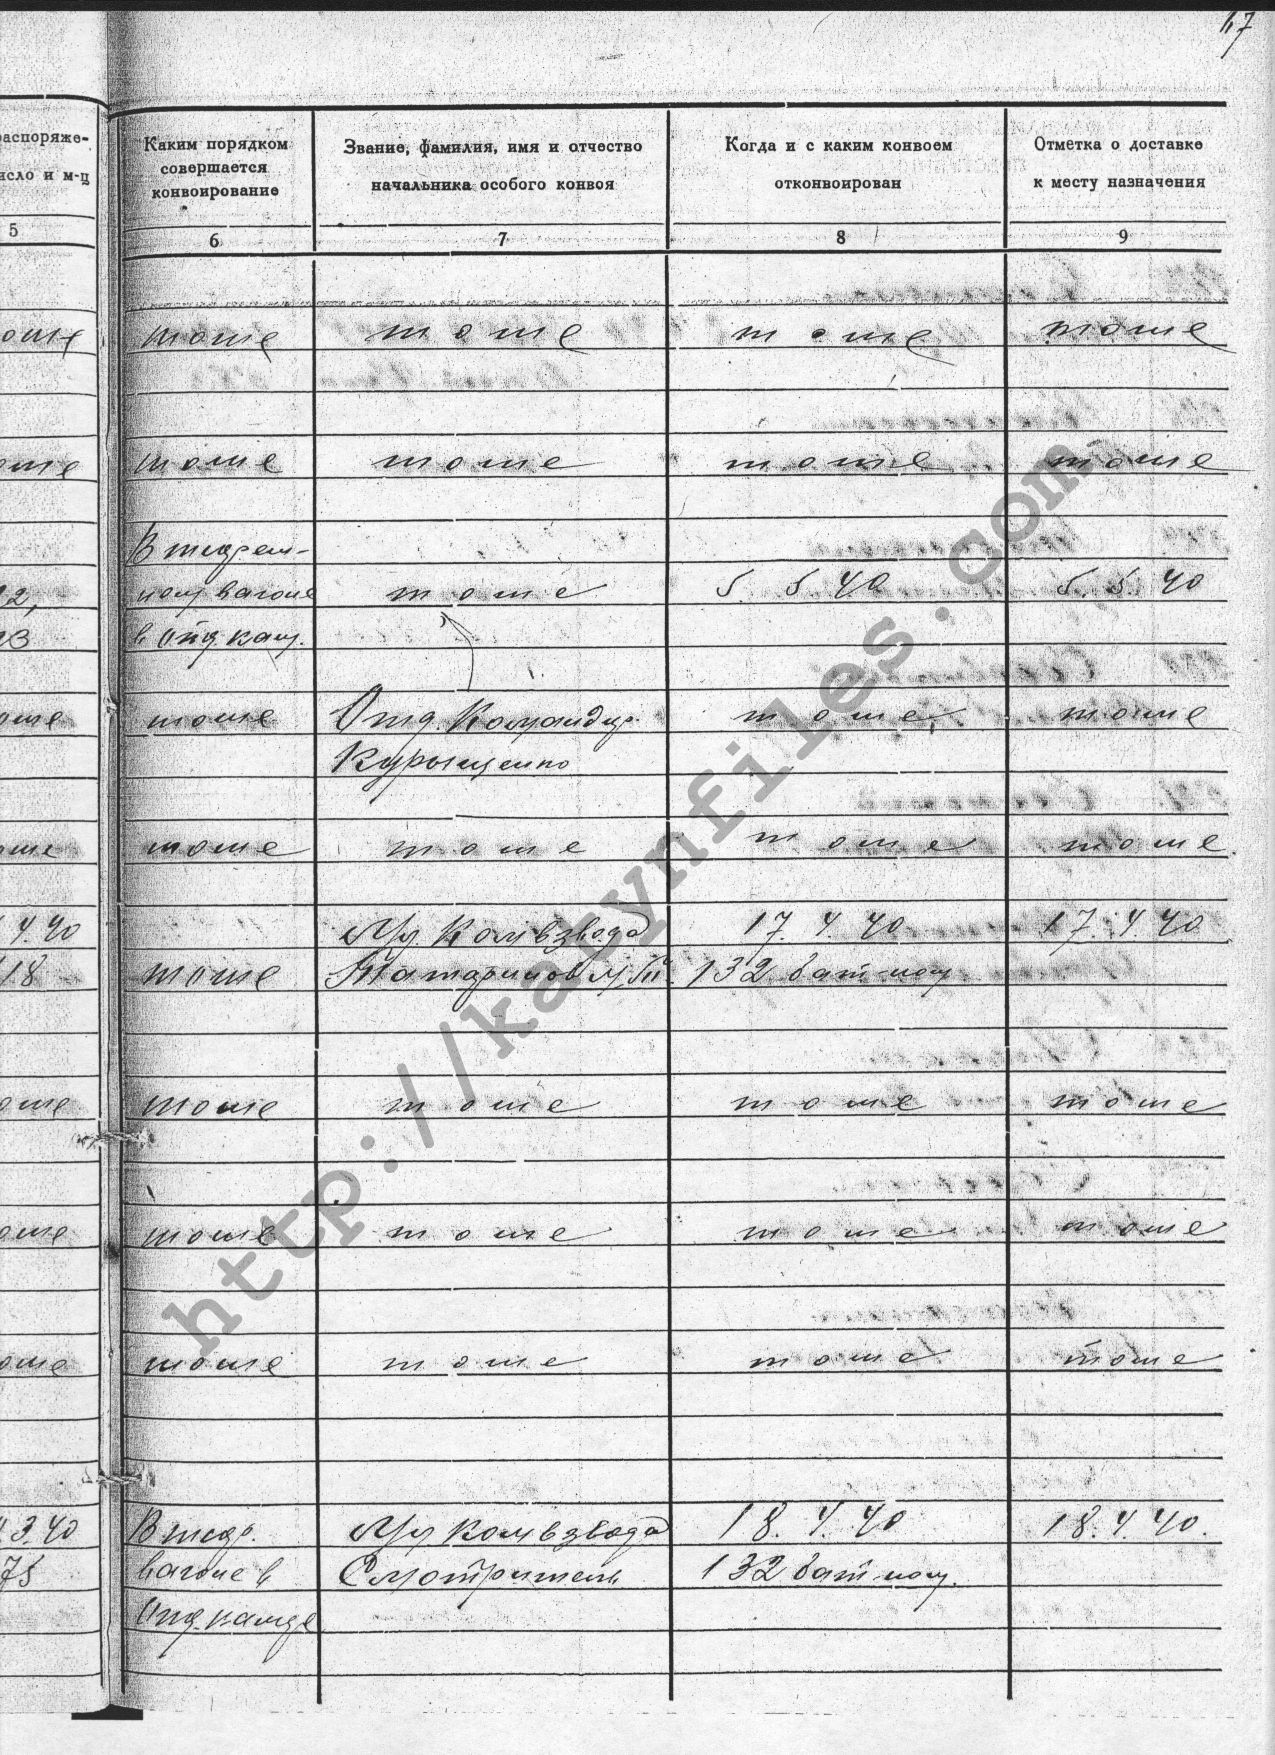 47
распоряже-
число и м-ц
5
Каким порядком
совершается
конвоирование
6
Звание, фамилия, имя и отчество
начальника особого конвоя
7
Когда и с каким конвоем
отконвоирован
8
Отметка о доставке
к месту назначения
9
тоже тоже тоже тоже
тоже тоже тоже тоже
В тюрем-
ном вагоне тоже 5. 5. 40 5. 5. 40
в отд. кам.
тоже Отд. Командир тоже тоже
Курыщенко
тоже тоже тоже тоже
4.40 Мл. Комвзвода 17. 4. 40 17. 4. 40
18 тоже Татаринов 132 бат-ном
тоже тоже тоже тоже
тоже тоже тоже тоже
тоже тоже тоже тоже
3.40 В тюр. Мл Комвзвода 18. 4. 40 18. 4. 40.
75 вагоне в Смотритель 132 бат-ном.
Отд. камере
http://katynfiles.com